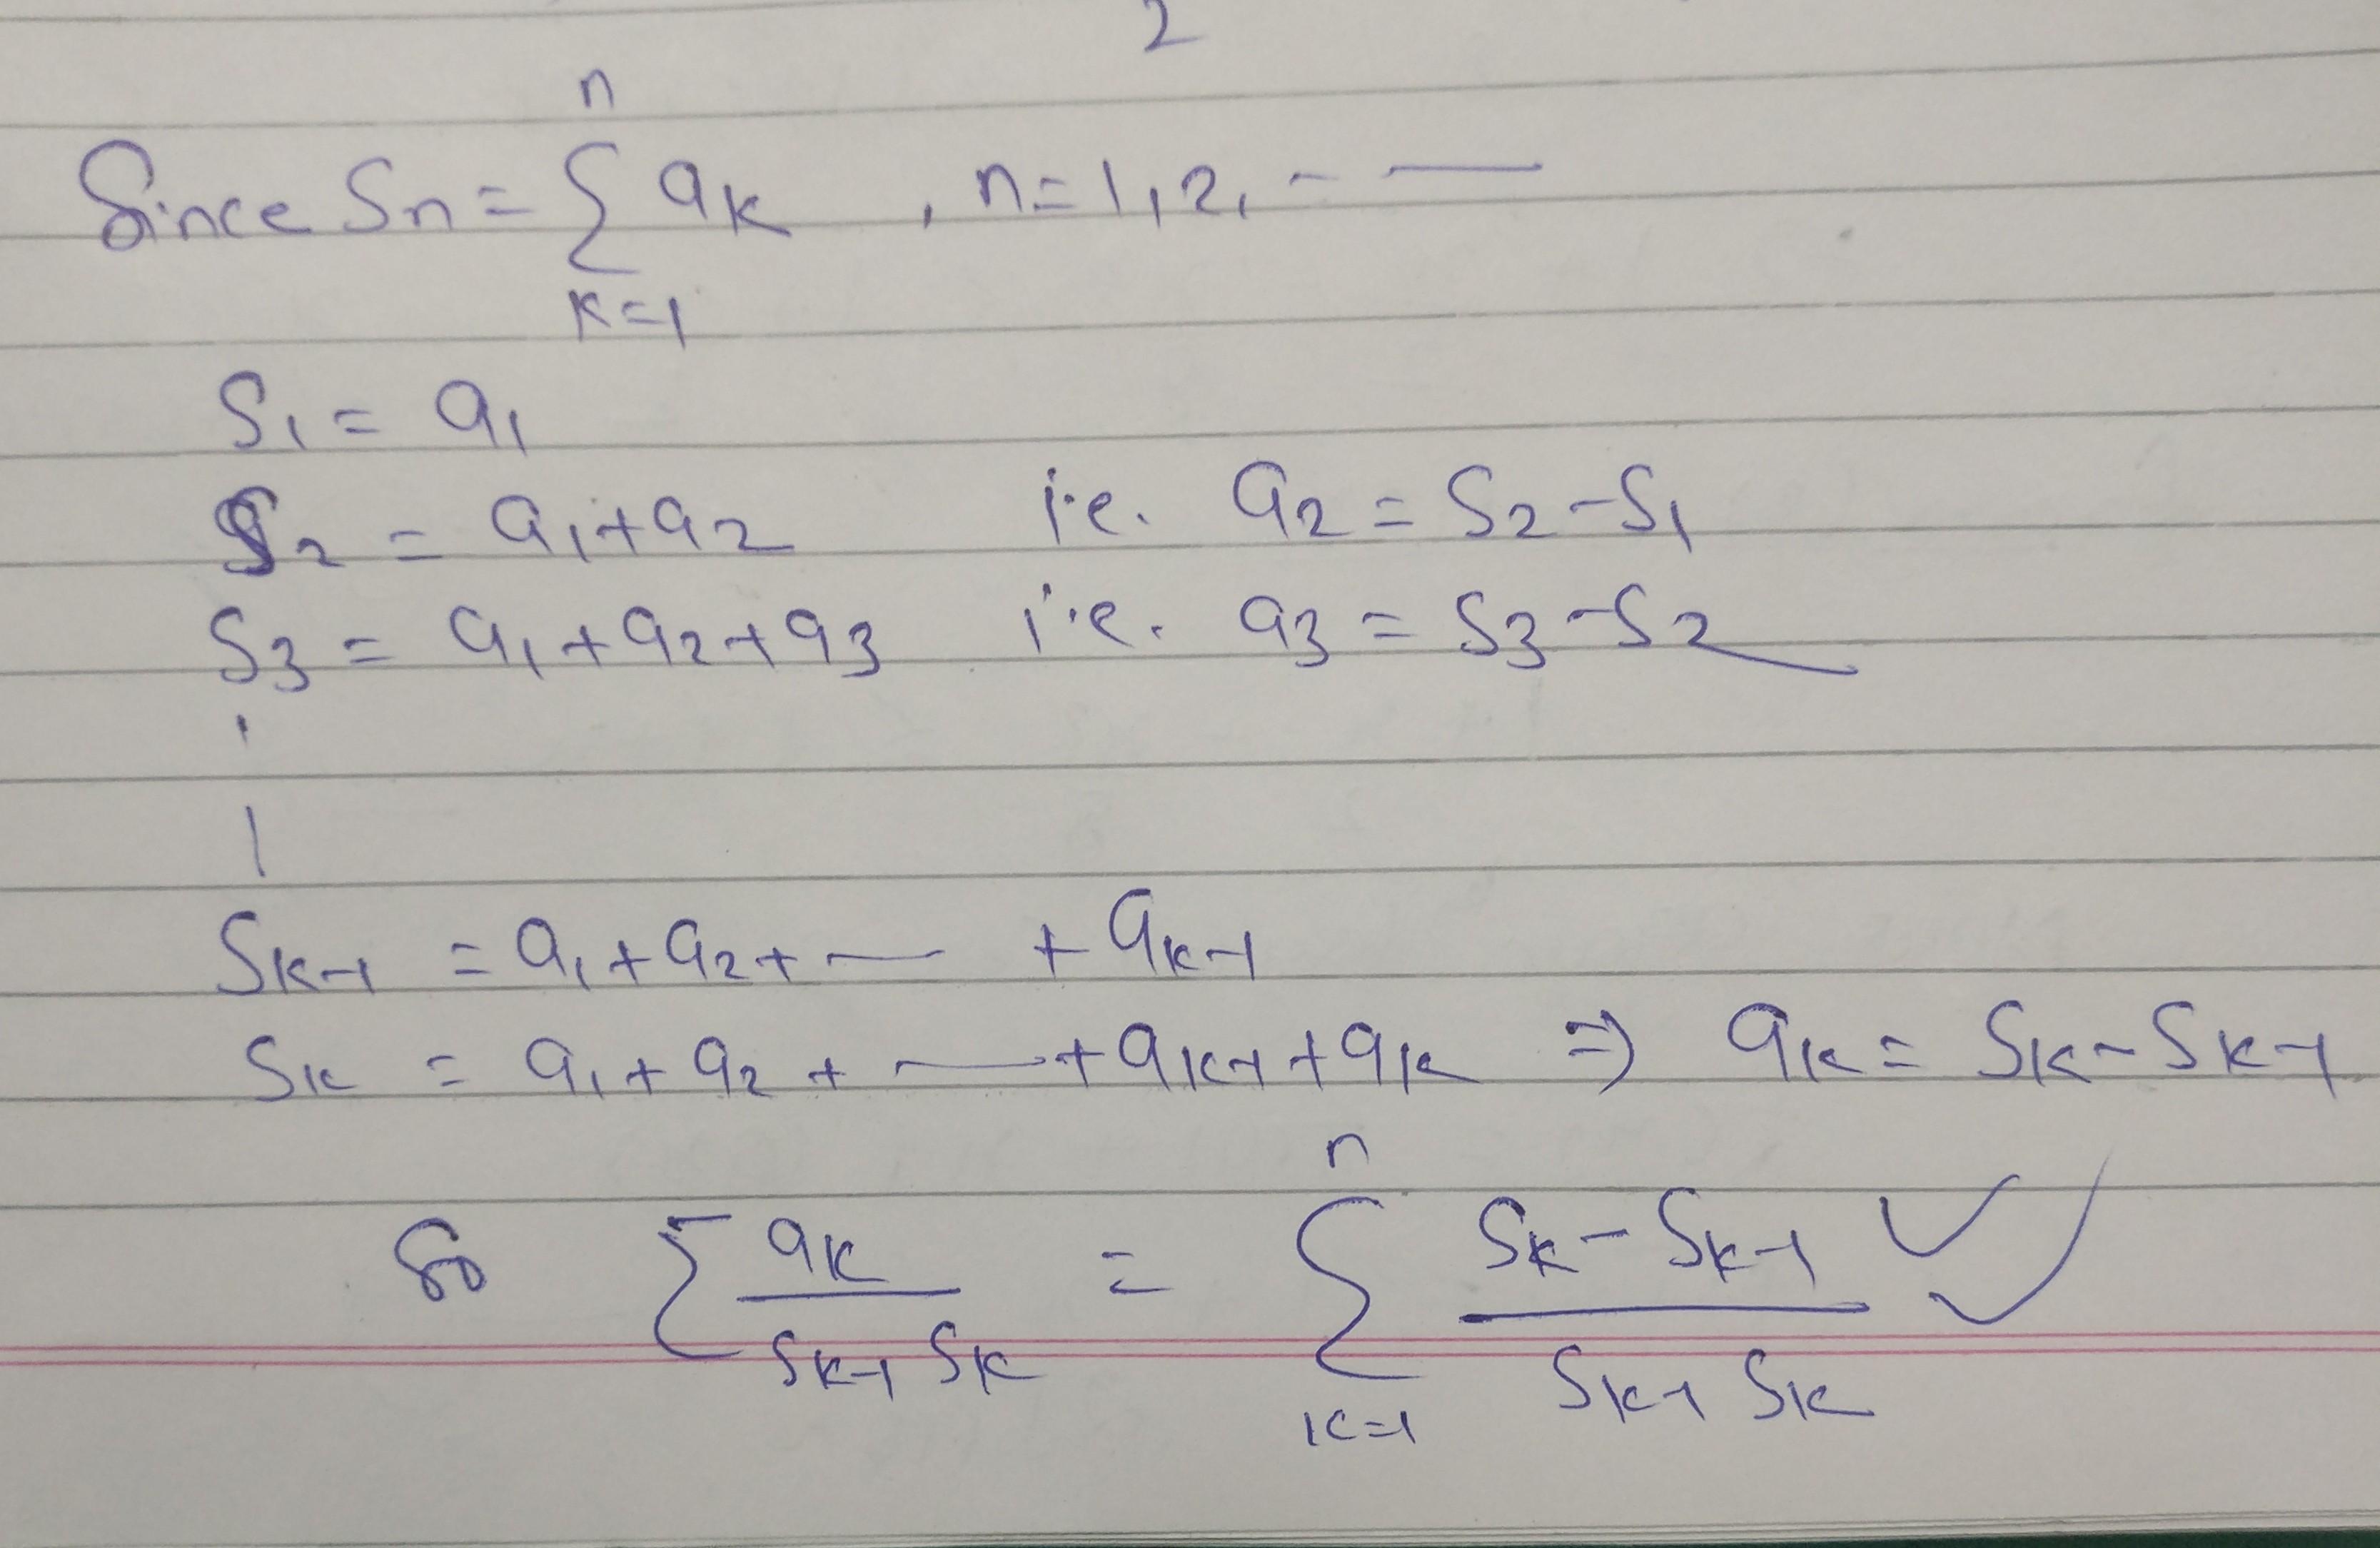 2
n
Since Sn = Σ ak , n=1,2, - —
k=1
S1 = a1
S2 = a1+a2 i.e. a2 = S2-S1
S3 = a1+a2+a3 i.e. a3 = S3-S2
Sk-1 = a1+a2+ — + ak-1
Sk = a1+a2+ — + ak-1+ak ⇒ ak = Sk-Sk-1
n
So Σ ak / Sk-1 Sk = Σ Sk-Sk-1 / Sk-1 Sk
k=1